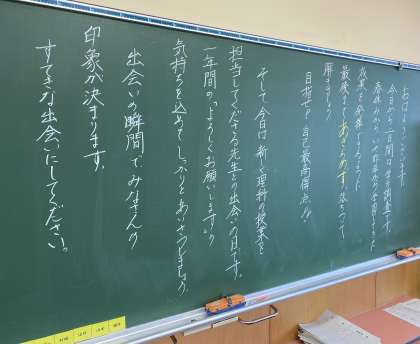 おはようございます。
今日から二日間は学力調査です。
成果を発揮できるように
最後まであきらめず、ねばって
解きましょう。
目指せ！自己最高得点！！
そして、今日は新しく理科の授業を
担当してくださる先生との出会いの日です。
一年間の「よろしくお願いします」の
気持ちを込めて、しっかりとあいさつしましょう。
出会いの瞬間でみなさんの
印象が決まります。
すてきな出会いにしてください。